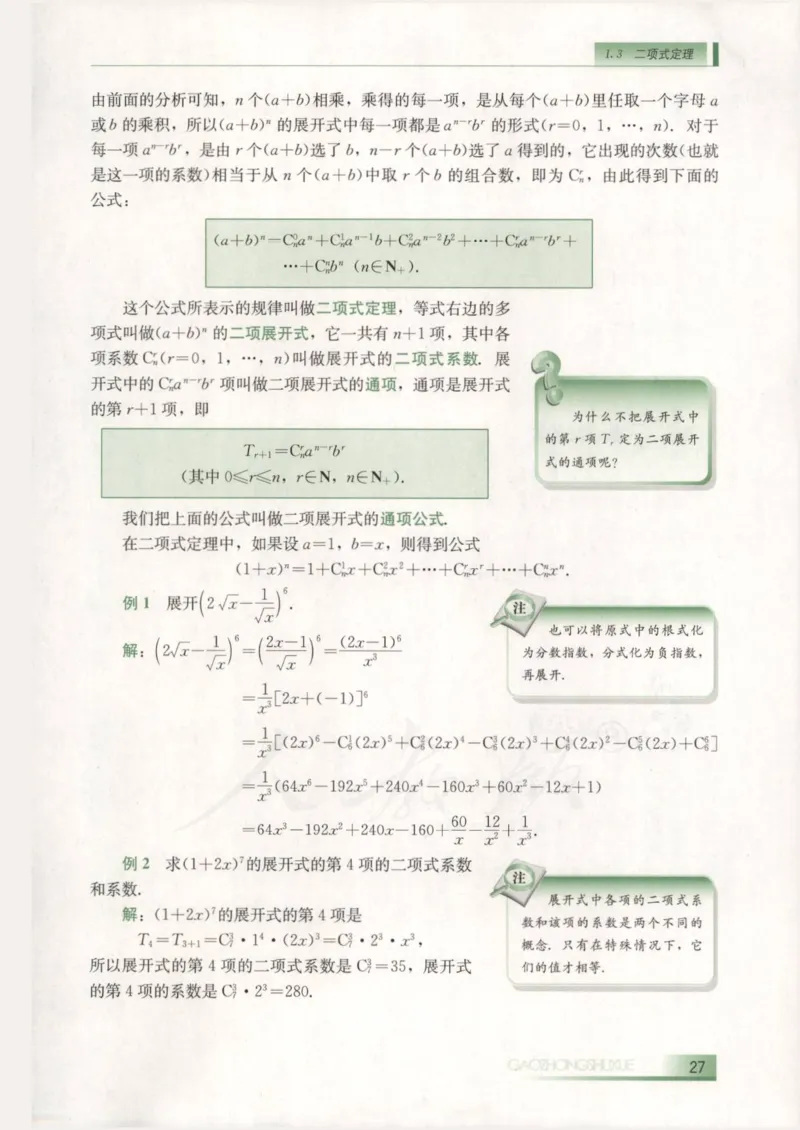 1.3 二项式定理
由前面的分析可知，n 个(a+b)相乘，乘得的每一项，是从每个(a+b)里任取一个字母 a
或 b 的乘积，所以(a+b)ⁿ 的展开式中每一项都是 aⁿ⁻ʳbʳ 的形式(r=0，1，…，n)．对于
每一项 aⁿ⁻ʳbʳ，是由 r 个(a+b)选了 b，n−r 个(a+b)选了 a 得到的，它出现的次数(也就
是这一项的系数)相当于从 n 个(a+b)中取 r 个 b 的组合数，即为 Cₙʳ，由此得到下面的
公式：
(a+b)ⁿ=Cₙ⁰aⁿ+Cₙ¹aⁿ⁻¹b+Cₙ²aⁿ⁻²b²+…+Cₙʳaⁿ⁻ʳbʳ+
…+Cₙⁿbⁿ (n∈N₊).
这个公式所表示的规律叫做二项式定理，等式右边的多
项式叫做(a+b)ⁿ 的二项展开式，它一共有 n+1 项，其中各
项系数 Cₙʳ(r=0，1，…，n)叫做展开式的二项式系数．展
开式中的 Cₙʳaⁿ⁻ʳbʳ 项叫做二项展开式的通项，通项是展开式
的第 r+1 项，即
?
为什么不把展开式中
的第 r 项 Tᵣ 定为二项展开
式的通项呢？
Tᵣ₊₁=Cₙʳaⁿ⁻ʳbʳ
(其中 0≤r≤n，r∈N，n∈N₊).
我们把上面的公式叫做二项展开式的通项公式．
在二项式定理中，如果设 a=1，b=x，则得到公式
(1+x)ⁿ=1+Cₙ¹x+Cₙ²x²+…+Cₙʳxʳ+…+Cₙⁿxⁿ.
例 1 展开(2√x−1/√x)⁶.
注
也可以将原式中的根式化
为分数指数，分式化为负指数，
再展开．
解：(2√x−1/√x)⁶=((2x−1)/√x)⁶=(2x−1)⁶/x³
=1/x³[2x+(−1)]⁶
=1/x³[(2x)⁶−C₆¹(2x)⁵+C₆²(2x)⁴−C₆³(2x)³+C₆⁴(2x)²−C₆⁵(2x)+C₆⁶]
=1/x³(64x⁶−192x⁵+240x⁴−160x³+60x²−12x+1)
=64x³−192x²+240x−160+60/x−12/x²+1/x³.
例 2 求(1+2x)⁷的展开式的第 4 项的二项式系数
和系数．
解：(1+2x)⁷的展开式的第 4 项是
T₄=T₃₊₁=C₇³·1⁴·(2x)³=C₇³·2³·x³，
所以展开式的第 4 项的二项式系数是 C₇³=35，展开式
的第 4 项的系数是 C₇³·2³=280.
注
展开式中各项的二项式系
数和该项的系数是两个不同的
概念．只有在特殊情况下，它
们的值才相等．
GAOZHONGSHUXUE
27